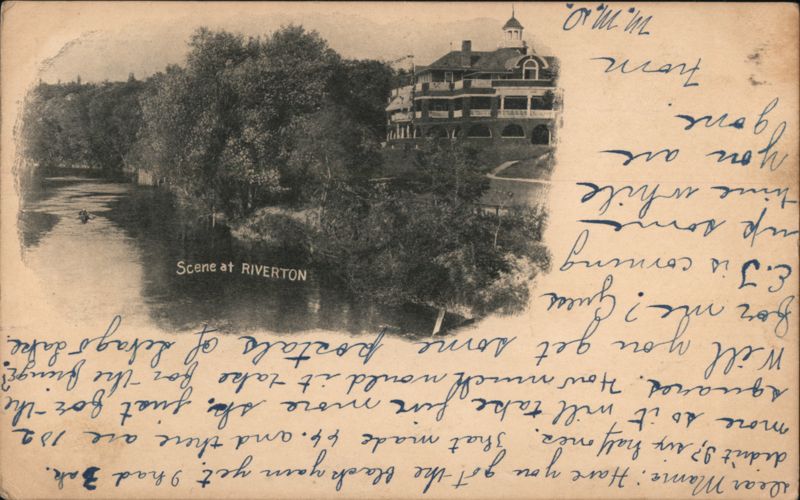 Scene at RIVERTON
Dear Mamie: Have you got the black yarn yet. I had 3 sk.
didn't I? six half ones. That made 64. and there are 132
more so it will take five more sk. just for the
squares. How much would it take for the fringe?
Will you get some postals of Sebago Lake.
for me? Guess
E. J is coming
up some
time while
you are
gone.
from